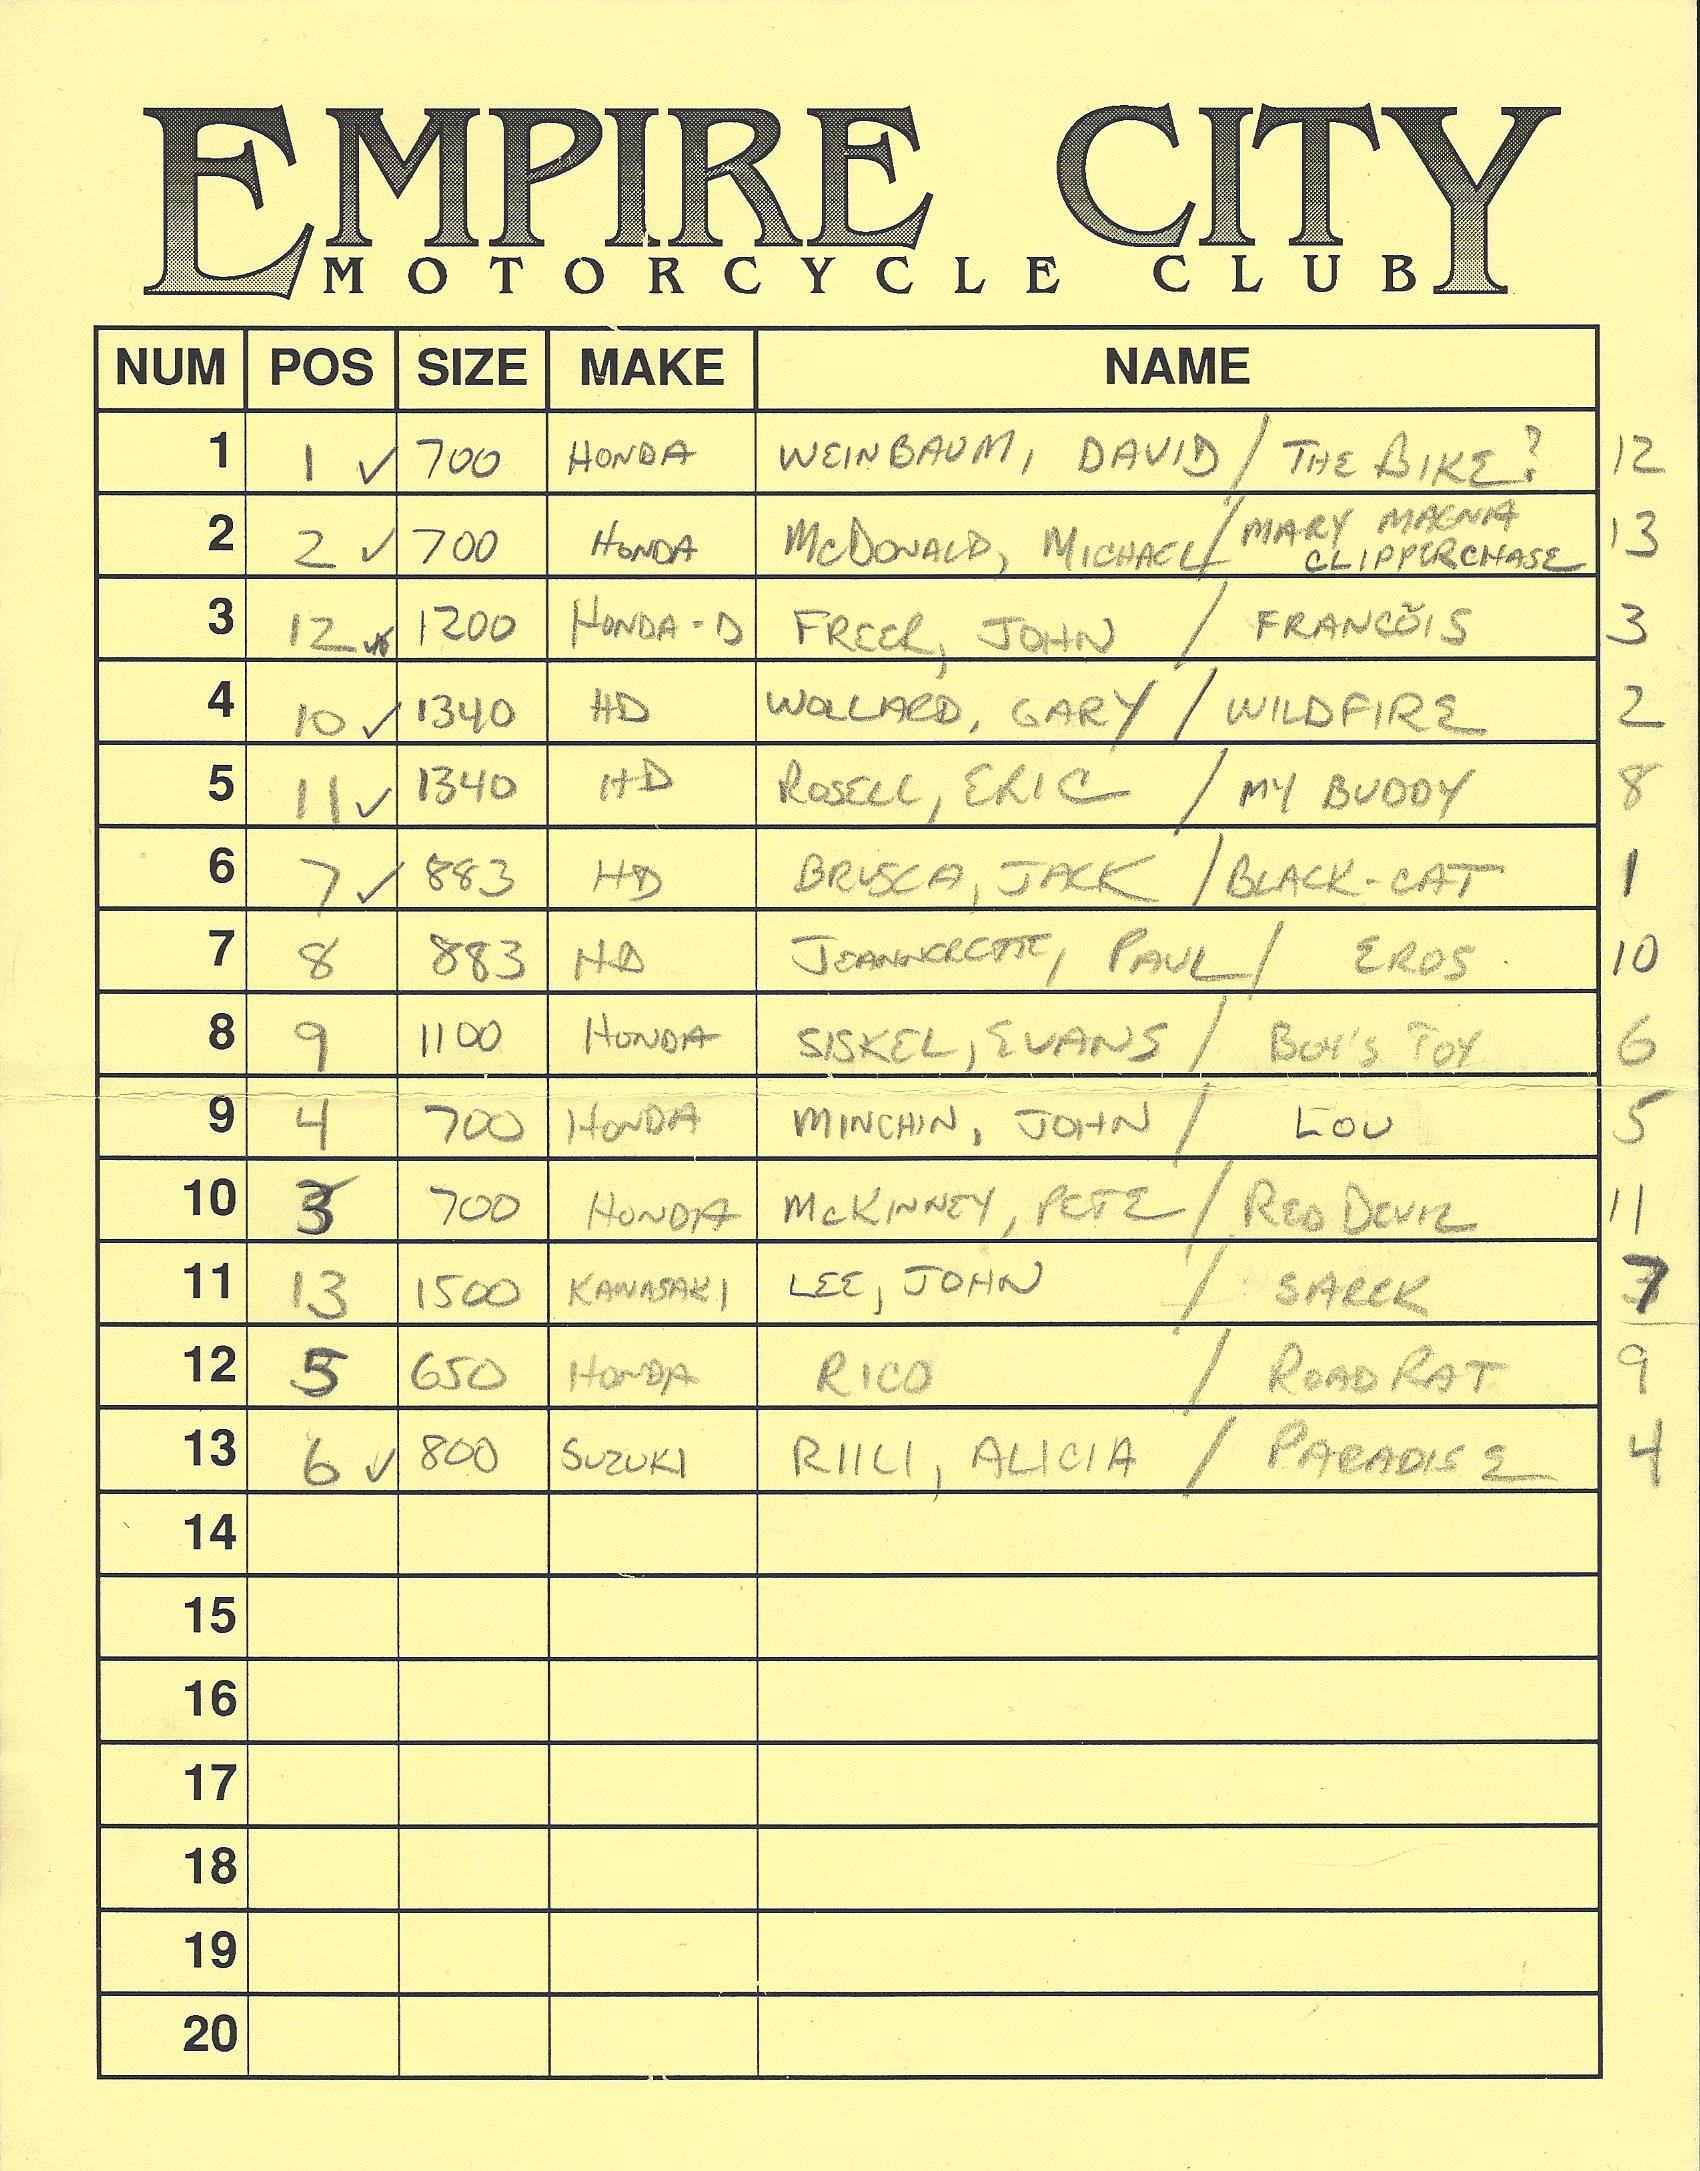 EMPIRE CITY
MOTORCYCLE CLUB
NUM POS SIZE MAKE NAME
1 1 ✓ 700 HONDA WEINBAUM, DAVID / THE BIKE? 12
2 2 ✓ 700 HONDA McDONALD, MICHAEL / MARY MAGNIA CLIPPERCHASE 13
3 12 1200 HONDA-D FREER, JOHN / FRANCOIS 3
4 10 ✓ 1340 HD WOLLARD, GARY / WILDFIRE 2
5 11 ✓ 1340 HD ROSELL, ERIC / MY BUDDY 8
6 7 ✓ 883 HD BRUSCA, JACK / BLACK-CAT 1
7 8 883 HD JEANNERETTE, PAUL / EROS 10
8 9 1100 HONDA SISKEL, EVANS / BOY'S TOY 6
9 4 700 HONDA MINCHIN, JOHN / LOU 5
10 3 700 HONDA McKINNEY, PETE / RED DEVIL 11
11 13 1500 KAWASAKI LEE, JOHN / SARCK 7
12 5 650 HONDA RICO / ROAD RAT 9
13 6 ✓ 800 SUZUKI RIILI, ALICIA / PARADISE 4
14
15
16
17
18
19
20